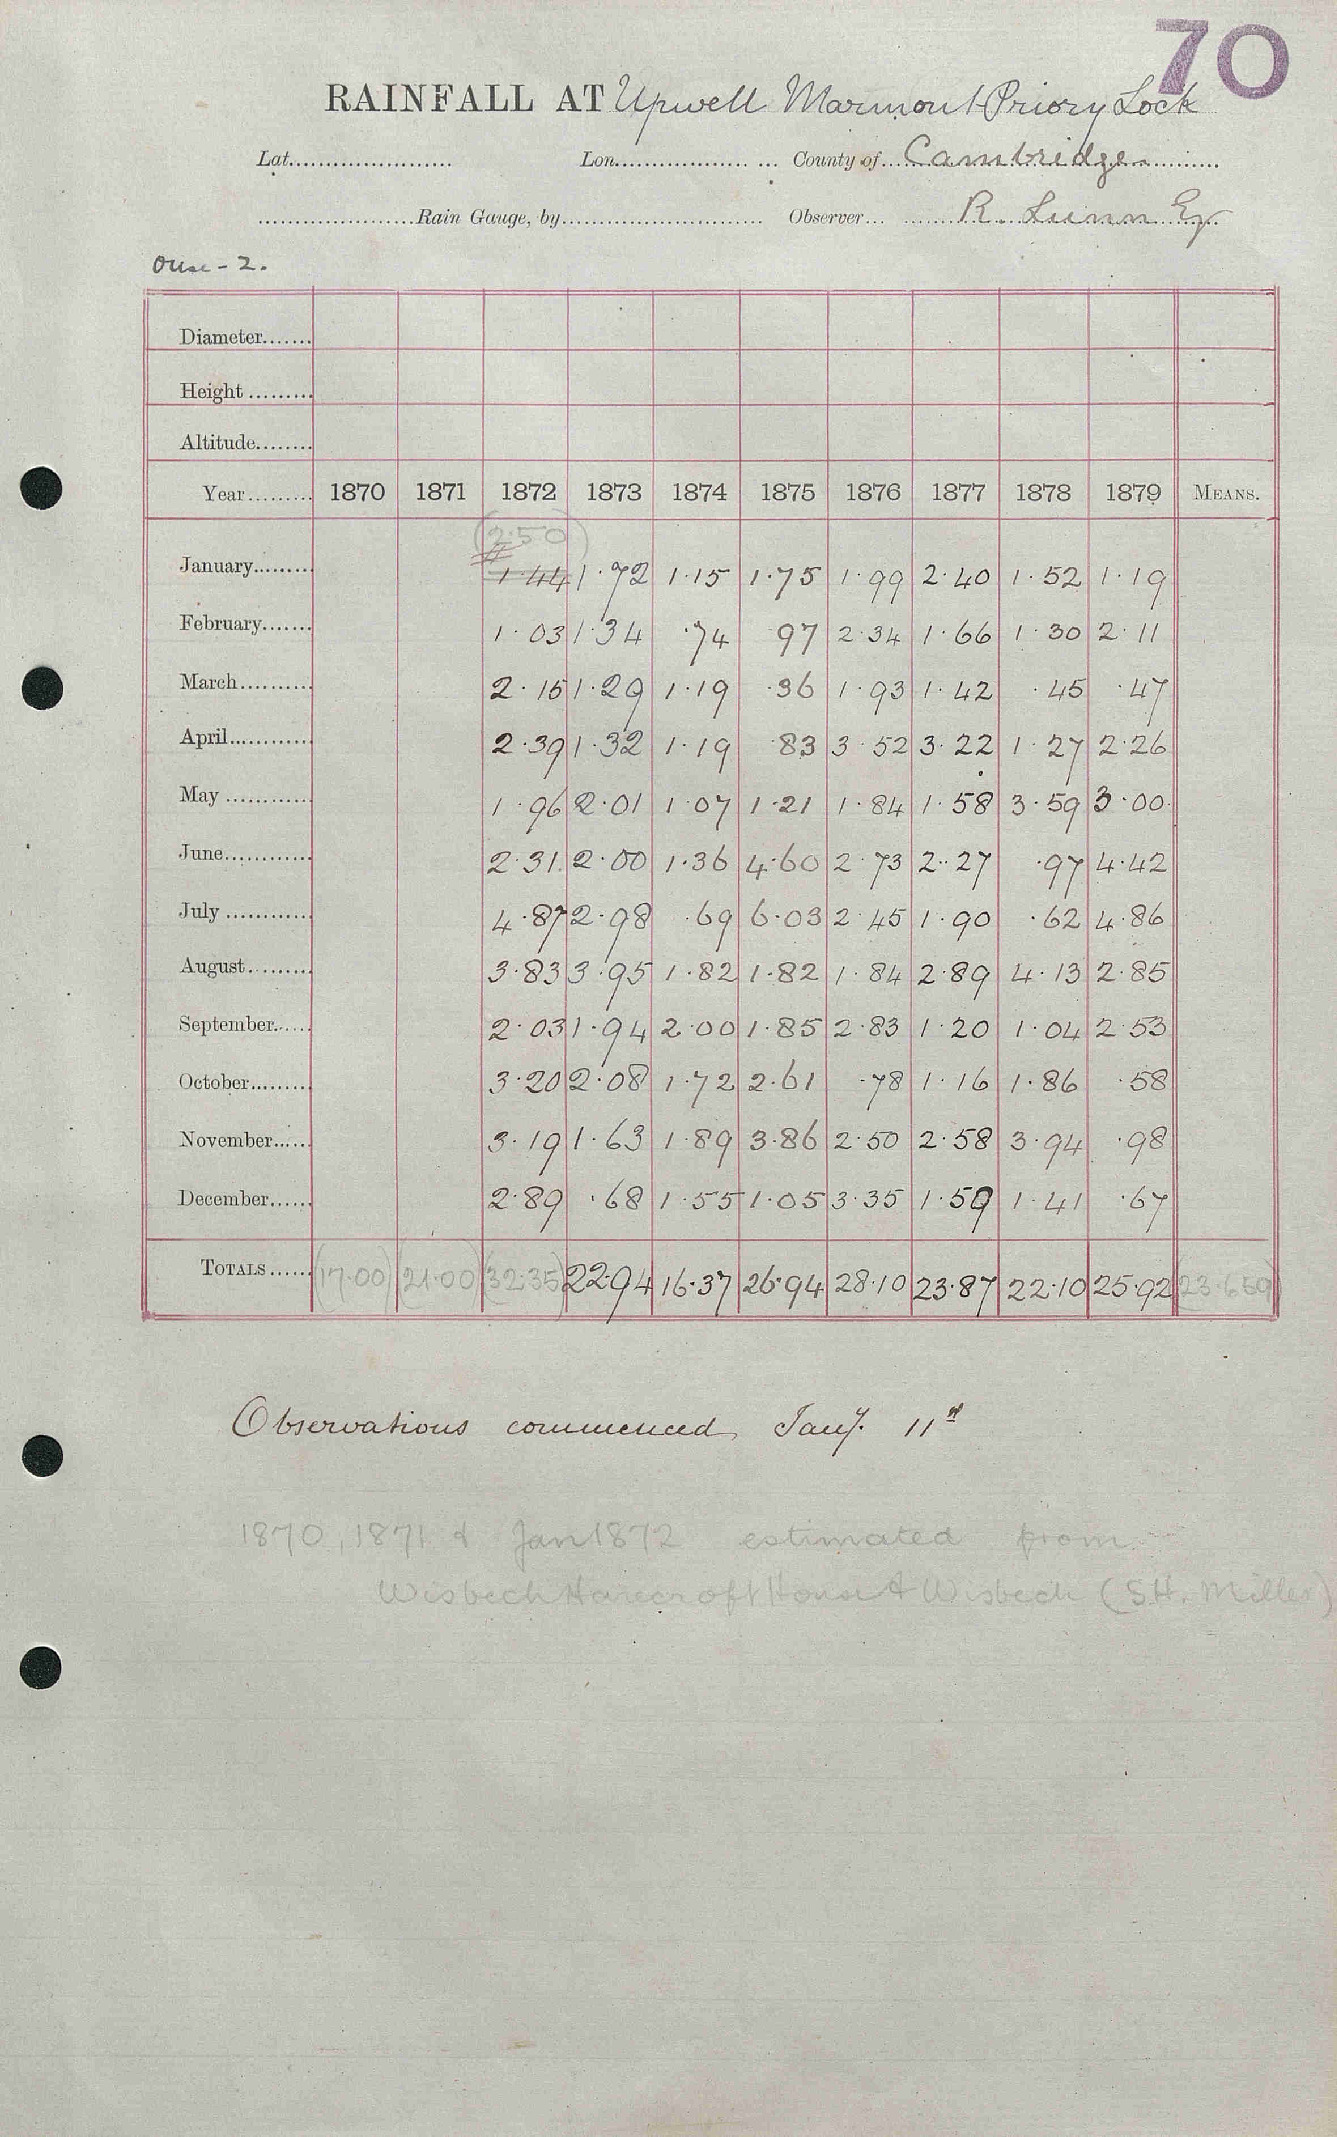 70
RAINFALL AT Upwell Marmont Priory Lock
Lat. Lon. County of Cambridge
Rain Gauge, by Observer R. Lunn Esq
Ouse - 2.
Diameter
Height
Altitude
Year 1870 1871 1872 1873 1874 1875 1876 1877 1878 1879 MEANS.
(2.50)
January 1.44 1.72 1.15 1.75 1.99 2.40 1.52 1.19
February 1.03 1.34 .74 97 2.34 1.66 1.30 2.11
March 2.15 1.29 1.19 .36 1.93 1.42 .45 .47
April 2.39 1.32 1.19 .83 3.52 3.22 1.27 2.26
May 1.96 2.01 1.07 1.21 1.84 1.58 3.59 3.00
June 2.31 2.00 1.36 4.60 2.73 2.27 .97 4.42
July 4.87 2.98 .69 6.03 2.45 1.90 .62 4.86
August 3.83 3.95 1.82 1.82 1.84 2.89 4.13 2.85
September 2.03 1.94 2.00 1.85 2.83 1.20 1.04 2.53
October 3.20 2.08 1.72 2.61 .78 1.16 1.86 .58
November 3.19 1.63 1.89 3.86 2.50 2.58 3.94 .98
December 2.89 .68 1.55 1.05 3.35 1.59 1.41 .67
TOTALS (17.00) (21.00) (32.35) 22.94 16.37 26.94 28.10 23.87 22.10 25.92 (23.659)
Observations commenced Jany. 11th
1870, 1871 & Jan 1872 estimated from
Wisbech Harecroft House & Wisbech (S.H. Miller)